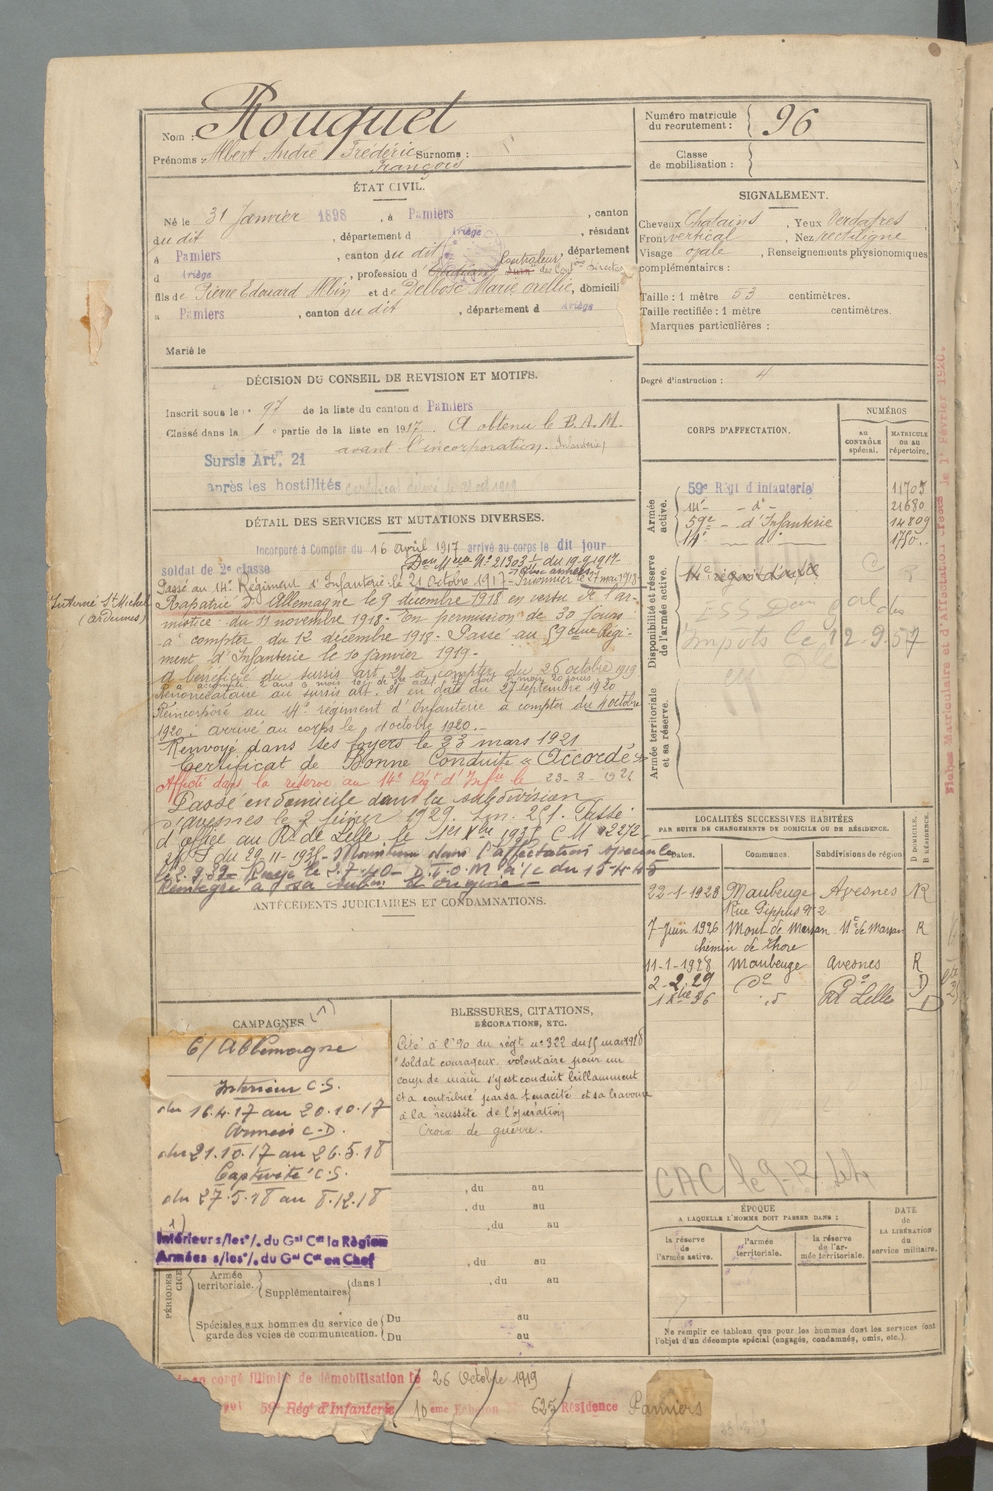 Nom : Rouquet
Prénoms : Albert André Frédéric Surnoms :
François
ÉTAT CIVIL.
Né le 31 Janvier 1898, à Pamiers, canton
du dit, département d Ariège, résidant
à Pamiers, canton du dit, département
d Ariège, profession d Contrôleur des Cont.ons Directes
fils de Pierre Edouard Albin et de Delbosc Marie Orellie, domicili
à Pamiers, canton du dit, département d Ariège
Marié le
DÉCISION DU CONSEIL DE REVISION ET MOTIFS.
Inscrit sous le n° 97 de la liste du canton d Pamiers
Classé dans la 1e partie de la liste en 1917. A obtenu le B.A.M.
avant l'incorporation. Infanterie
Sursis Art. 21
après les hostilités Certificat délivré le 21 oct 1919
DÉTAIL DES SERVICES ET MUTATIONS DIVERSES.
Incorporé à Compter du 16 avril 1917 arrivé au corps le dit jour
soldat de 2e classe
Don Mlle N° 21303 1/1 du 19-9-1917
Passé au 14e Régiment d'Infanterie le 21 Octobre 1917 - Prisonnier le 27 mai 1918
Interné St Michel
(Ardennes)
Rapatrié d'Allemagne le 9 décembre 1918 en vertu de l'ar-
mistice du 11 novembre 1918. En permission de 30 jours
à compter du 12 décembre 1918. Passé au 59ème Régi-
ment d'Infanterie le 10 janvier 1919.
A bénéficié du sursis art. 21 à compter du 26 octobre 1919
Renonciataire au sursis art. 21 en date du 27 septembre 1920
Réincorporé au 14e régiment d'Infanterie à compter du 4 octobre
1920. arrivé au corps le 4 octobre 1920.
Renvoyé dans ses foyers le 23 mars 1921
Certificat de Bonne Conduite "Accordé"
Affecté dans la réserve au 14e Régt d'Infie le 23-3-1921
Passé en domicile dans la subdivision
d'Avesnes le 2 février 1929. Passé
d'office au Rt de Lille le 1er Xbre 1935 C M 12272
du 29-11-1935. Maintenu dans l'affectation spéciale
le 2.9.39 Rayé le 2.7.40 D.T.O.M. a/c du 15.4.45
Réintégré à sa subon d'origine
ANTÉCÉDENTS JUDICIAIRES ET CONDAMNATIONS.
CAMPAGNES (1)
C/ Allemagne
Intérieur C.S.
du 16.4.17 au 20.10.17
Armées C.D.
du 21.10.17 au 26.5.18
Captivité C.S.
du 27.5.18 au 8.12.18
(1)
Intérieur s/les °/. du Gal Ct la Région
Armées s/les °/. du Gal Ct en Chef
PÉRIODES
Armée territoriale.
Supplémentaires
dans l
Spéciales aux hommes du service de
garde des voies de communication.
Du au
Du au
BLESSURES, CITATIONS,
DÉCORATIONS, ETC.
Cité à l'Oo du régt n° 322 du 15 mai 1918
"soldat courageux, volontaire pour un
coup de main s'y est conduit brillamment
et a contribué par sa ténacité et sa bravoure
à la réussite de l'opération
Croix de guerre.
, du au
, du au
, du au
, du au
, du au
Numéro matricule
du recrutement : 96
Classe
de mobilisation :
SIGNALEMENT.
Cheveux Chatains, Yeux Verdatres
Front vertical Nez rectiligne
Visage ovale, Renseignements physionomiques
complémentaires :
Taille : 1 mètre 53 centimètres.
Taille rectifiée : 1 mètre centimètres.
Marques particulières :
Degré d'instruction : 4
CORPS D'AFFECTATION.
NUMÉROS
AU CONTRÔLE spécial.
MATRICULE OU AU répertoire.
Armée active.
59e Régt d'infanterie 11705
14e - do - 21680
59e - d'Infanterie 14809
14e do 1750
Disponibilité et réserve de l'armée active.
14e régiment d'infie
ESS Don gal des
Impots le 12.9.57
Armée territoriale et sa réserve.
LOCALITÉS SUCCESSIVES HABITÉES
PAR SUITE DE CHANGEMENTS DE DOMICILE OU DE RÉSIDENCE.
Dates. Communes. Subdivisions de région D DOMICILE. R RÉSIDENCE.
22-1-1923 Maubeuge Avesnes R
7-Juin 1926 Mont de Marsan Mt de Marsan R
chemin de Thore
11-1-1928 Maubeuge Avesnes R
2-2-29 do do D
1 Xbre 36 do Rt Lille D
CAC le 9-12
ÉPOQUE
A LAQUELLE L'HOMME DOIT PASSER DANS :
la réserve de l'armée active.
l'armée territoriale.
la réserve de l'armée territoriale.
DATE de LA LIBÉRATION du service militaire.
Ne remplir ce tableau que pour les hommes dont les services font
l'objet d'un décompte spécial (engagés, condamnés, omis, etc.).
en congé illimité de démobilisation le 26 Octobre 1919
59e Régt d'Infanterie 10eme Echelon 625 Résidence Pamiers
Fiches Matriculaire et d'Affectation créées le 1er Février 1920.